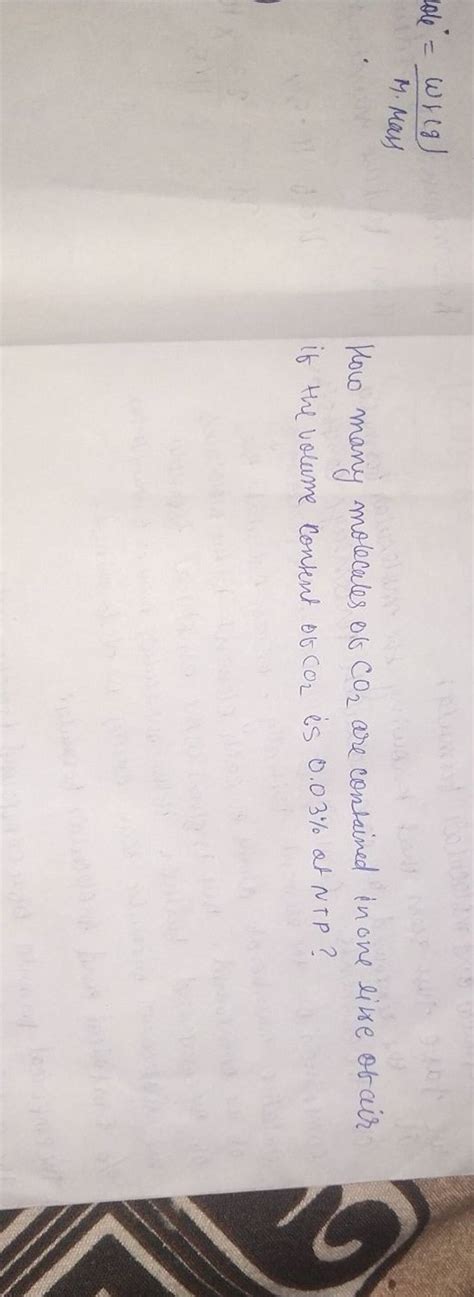 ole = Wt(g)
M. Mass
How many molecules of CO2 are contained in one litre of air
if the volume content of CO2 is 0.03% at NTP?